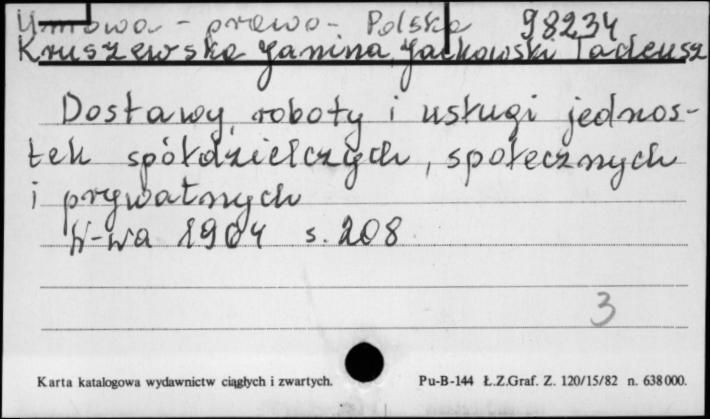 Umowa - prawo - Polska 98234
Kruszewska Janina, Jackowski Tadeusz
Dostawy, roboty i usługi jednos-
tek spółdzielczych, społecznych
i prywatnych
W-wa 1964 s. 208
3
Karta katalogowa wydawnictw ciągłych i zwartych. Pu-B-144 Ł.Z.Graf. Z. 120/15/82 n. 638000.